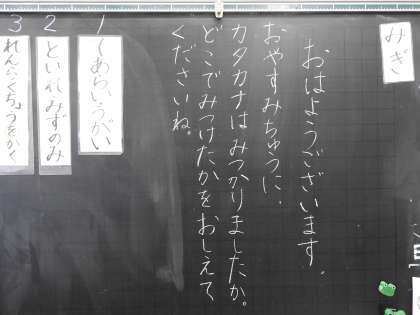 みぎ
おはようございます。
おやすみちゅうに、
カタカナはみつかりましたか。
どこでみつけたかをおしえて
くださいね。
1
てあらいうがい
2
といれみずのみ
3
れんらくちょうをかく